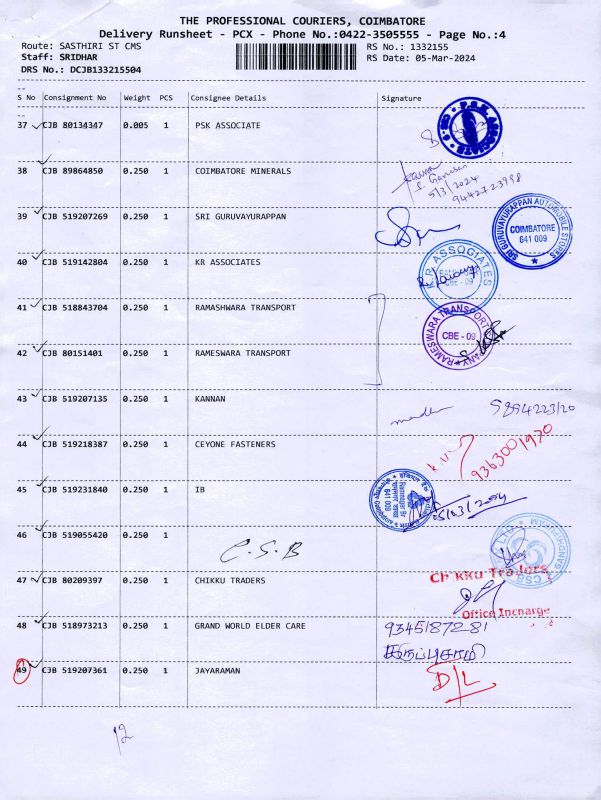 THE PROFESSIONAL COURIERS, COIMBATORE
Delivery Runsheet - PCX - Phone No.:0422-3505555 - Page No.:4
Route: SASTHIRI ST CMS RS No.: 1332155
Staff: SRIDHAR RS Date: 05-Mar-2024
DRS No.: DCJB133215504
S No Consignment No Weight PCS Consignee Details Signature
37 CJB 80134347 0.005 1 PSK ASSOCIATE
P.S.K. ASSOCIATE
38 CJB 89864850 0.250 1 COIMBATORE MINERALS
5/3/2024
39 CJB 519207269 0.250 1 SRI GURUVAYURAPPAN
SRI GURUVAYURAPPAN AUTOMOBILE STORES
COIMBATORE
641 009
40 CJB 519142804 0.250 1 KR ASSOCIATES
K.R ASSOCIATES
CBE - 09
41 CJB 518843704 0.250 1 RAMASHWARA TRANSPORT
RAMESWARA TRANSPORT COMPANY
CBE - 09
42 CJB 80151401 0.250 1 RAMESWARA TRANSPORT
43 CJB 519207135 0.250 1 KANNAN
44 CJB 519218387 0.250 1 CEYONE FASTENERS
9363001970
45 CJB 519231840 0.250 1 IB
Ramnagar Br
641 009
05/03/2024
46 CJB 519055420 0.250 1
C.S.B
CSB
LTD
GANDHIPURAM
47 CJB 80209397 0.250 1 CHIKKU TRADERS
Office Incharge
48 CJB 518973213 0.250 1 GRAND WORLD ELDER CARE
9345187281
கருப்புசாமி
49 CJB 519207361 0.250 1 JAYARAMAN
D/L
12